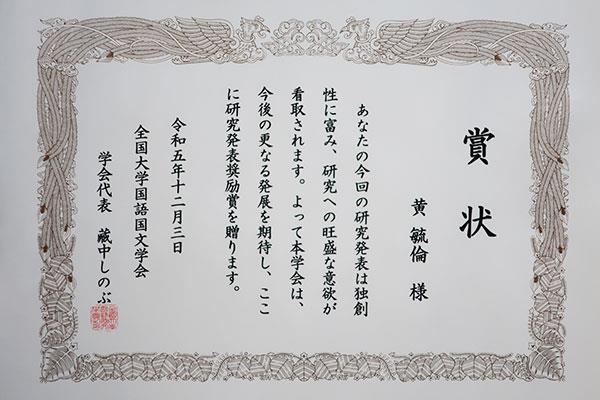 賞状
黄 毓倫 様
あなたの今回の研究発表は独創
性に富み、研究への旺盛な意欲が
看取されます。よって本学会は、
今後の更なる発展を期待し、ここ
に研究発表奨励賞を贈ります。
令和五年十二月三日
全国大学国語国文学会
学会代表 藏中しのぶ